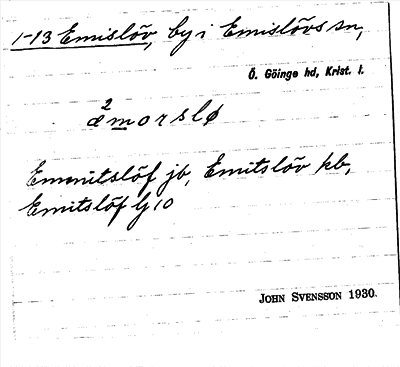 1-13 Emislöv, by i Emislövs sn,
Ö. Göinge hd, Krist. l.
æ²morslø
Emmitslöf jb, Emitslöv kb,
Emitslöf Gj 10
JOHN SVENSSON 1930.